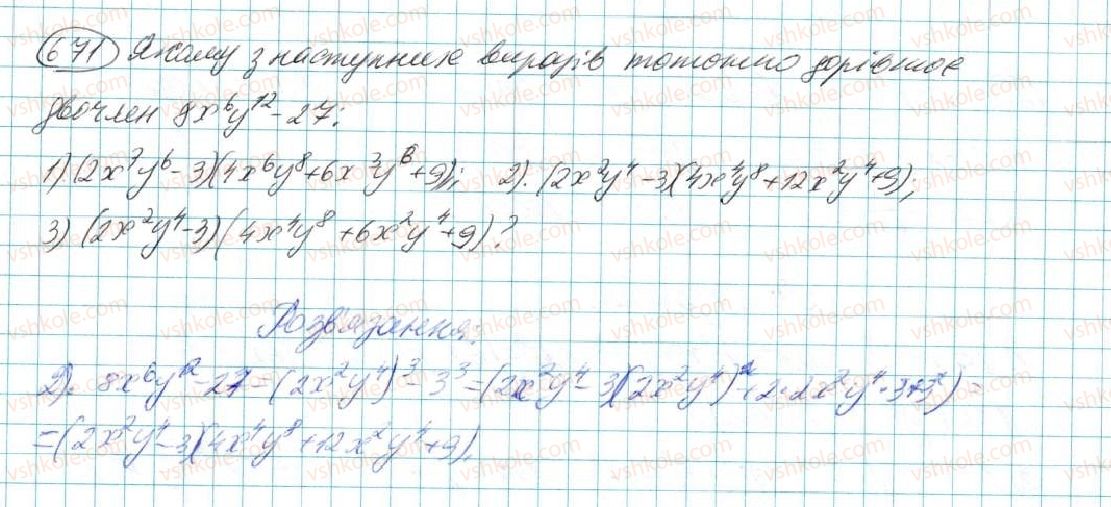 671 Якому з наступних виразів тотожно дорівнює
двочлен 8x⁶y¹²-27:
1) (2x³y⁶-3)(4x⁶y⁸+6x³y⁶+9); 2). (2x²y⁴-3)(4x⁴y⁸+12x²y⁴+9);
3) (2x²y⁴-3)(4x⁴y⁸+6x²y⁴+9)?
Розв'язання:
2). 8x⁶y¹²-27=(2x²y⁴)³-3³=(2x²y⁴-3)(2x²y⁴)²+2·2x²y⁴·3+3²)=
=(2x²y⁴-3)(4x⁴y⁸+12x²y⁴+9).